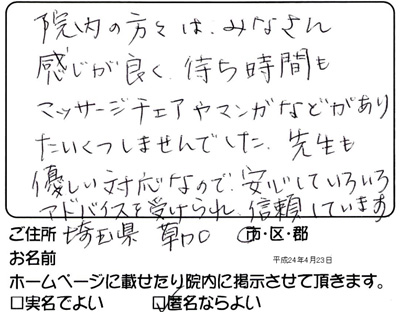 院内の方々は、みなさん
感じが良く、待ち時間も
マッサージチェアやマンガなどがあり
たいくつしませんでした。先生も
優しい対応なので、安心していろいろ
アドバイスを受けられ、信頼しています
ご住所 埼玉県 草加 市・区・郡
お名前 平成24年4月23日
ホームページに載せたり院内に掲示させて頂きます。
□実名でよい ☑匿名ならよい